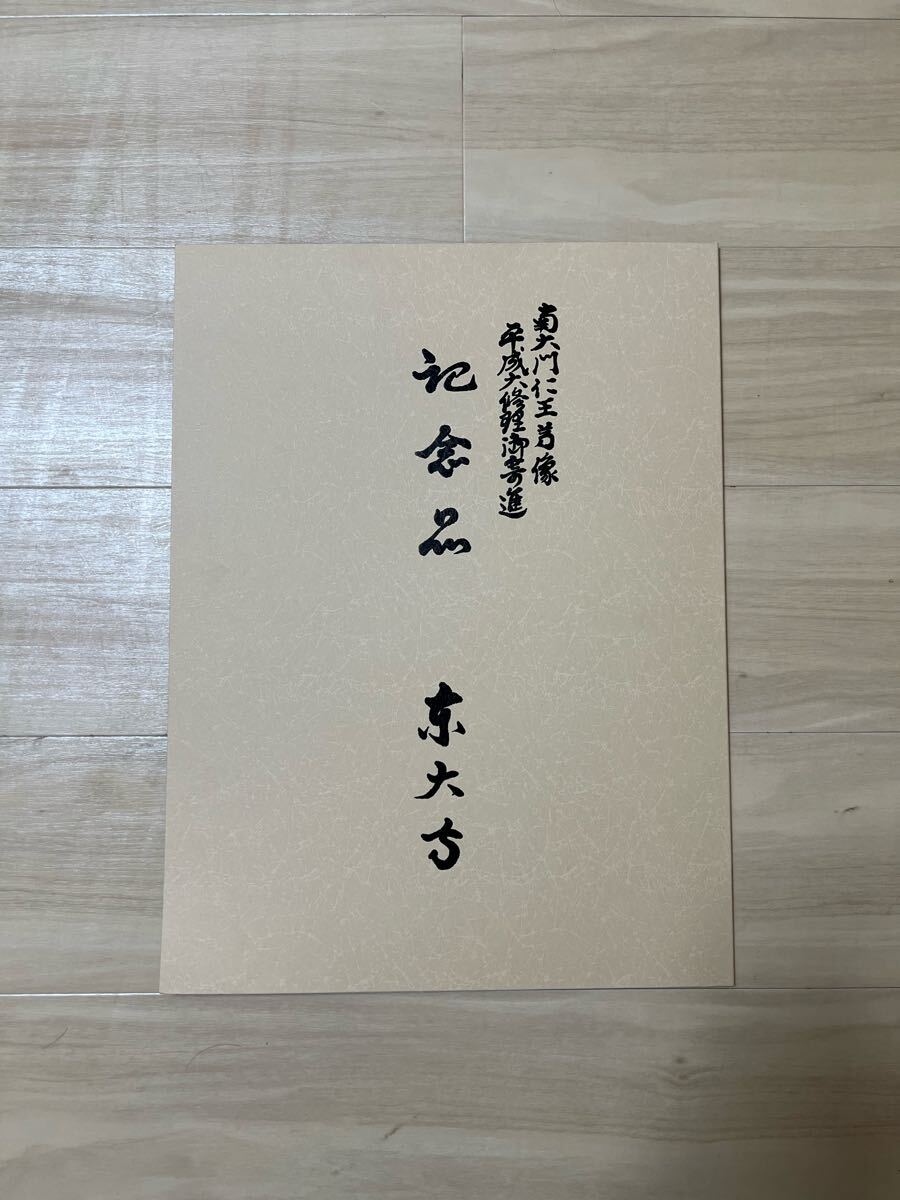 南大門仁王尊像
平成大修理御寄進
記念品 東大寺